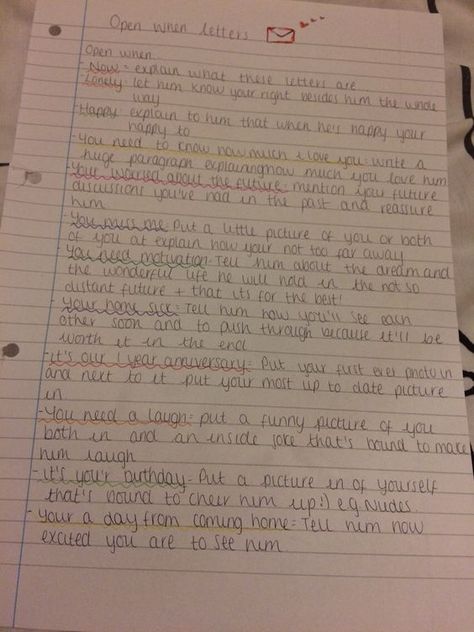 Open when letters
Open when...
- Now = explain what these letters are
- Lonely: let him know your right besides him the whole
way
- Happy: explain to him that when he's happy your
happy to
- You need to know how much i love you: write a
huge paragraph explaining how much you love him
- You worried about the future: mention your future
discussions you've had in the past and reassure
him
- You miss me: Put a little picture of you or both
of you at explain how your not too far away
- You need motivation: Tell him about the dream and
the wonderful life he will hold in the not so
distant future + that its for the best!
- Your home sick: Tell him how you'll see each
other soon and to push through because it'll be
worth it in the end
- it's our 1 year anniversary: Put your first ever photo in
and next to it put your most up to date picture
in
- You need a laugh: put a funny picture of you
both in and an inside joke that's bound to make
him laugh
- it's your birthday: Put a picture in of yourself
that's bound to cheer him up:) e.g Nudes
- Your a day from coming home: Tell him how
excited you are to see him